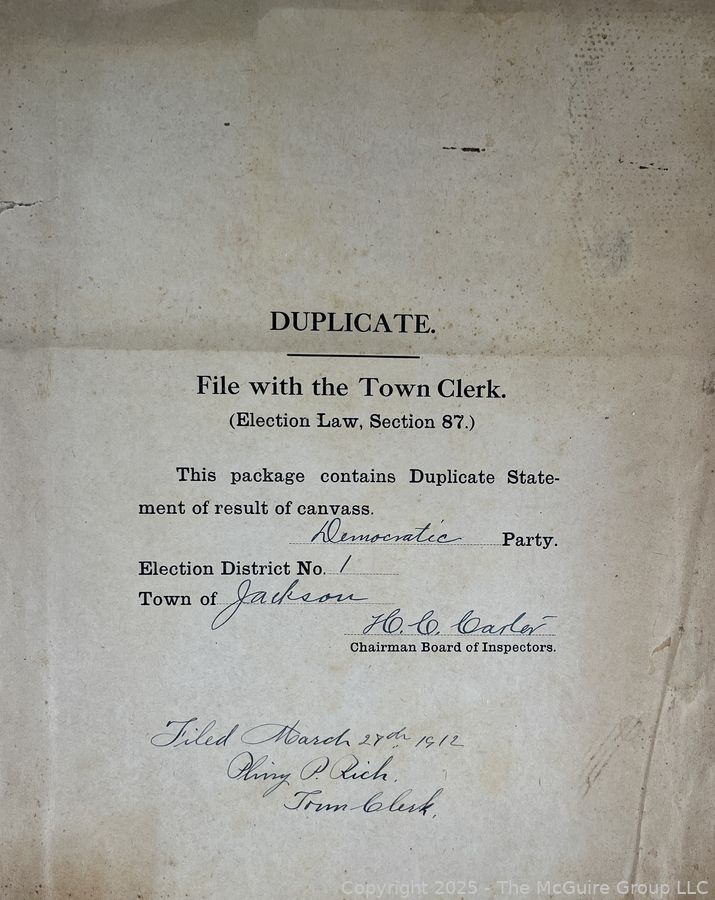 DUPLICATE.
File with the Town Clerk.
(Election Law, Section 87.)
This package contains Duplicate State-
ment of result of canvass.
Democratic Party.
Election District No. 1
Town of Jackson
H. C.
Chairman Board of Inspectors.
Filed March 27th 1912
Pliny P. Rich.
Town Clerk.
Copyright 2025 - The McGuire Group LLC